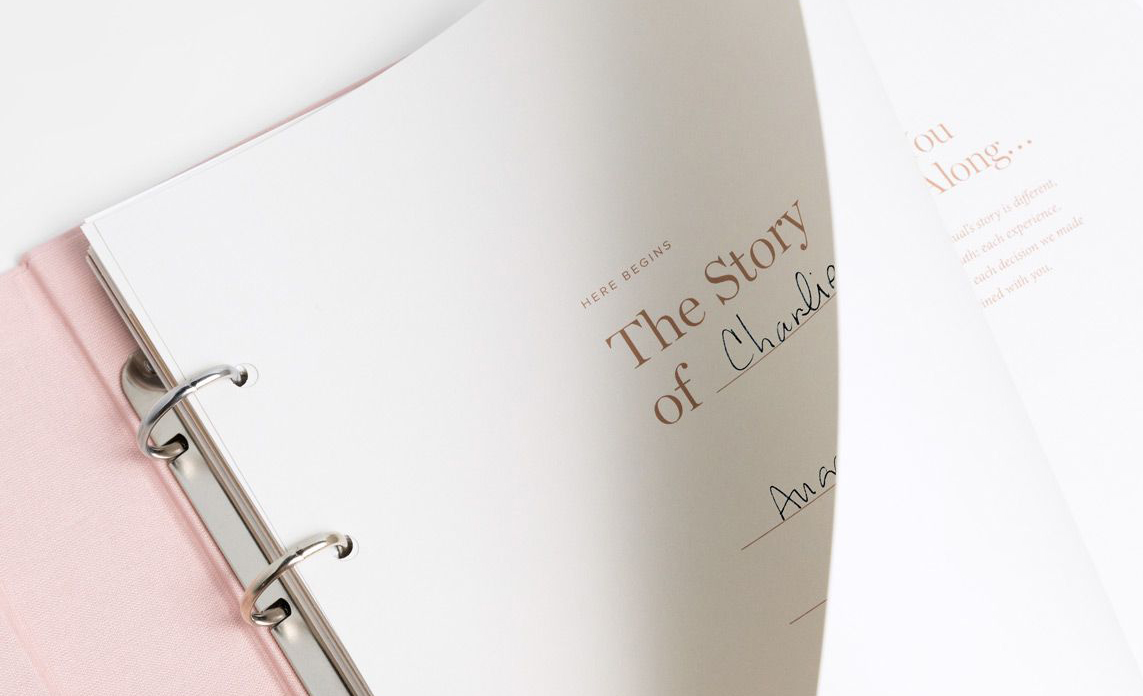 HERE BEGINS
The Story
of Charlie
Along...
story is different,
each experience.
each decision we made
with you.